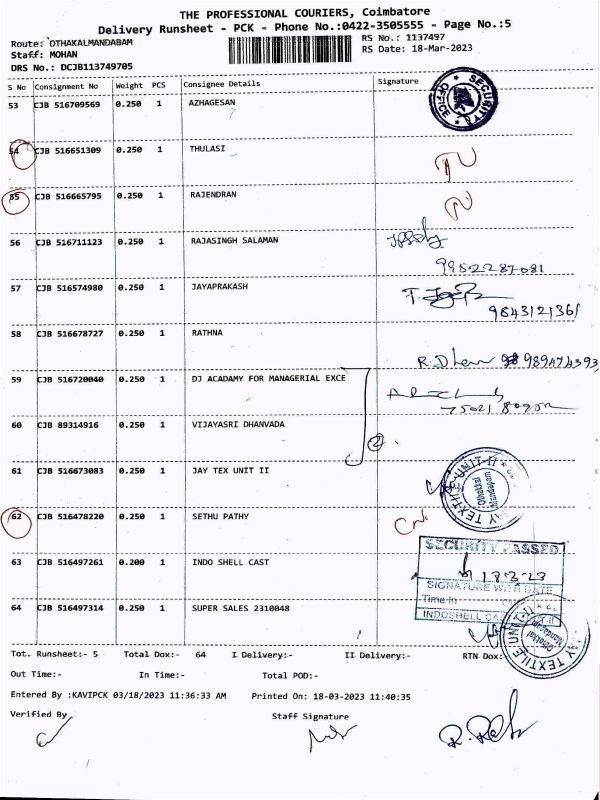 THE PROFESSIONAL COURIERS, Coimbatore
Delivery Runsheet - PCK - Phone No.:0422-3505555 - Page No.:5
Route: OTHAKALMANDABAM RS No.: 1137497
Staff: MOHAN RS Date: 18-Mar-2023
DRS No.: DCJB113749705
S No Consignment No Weight PCS Consignee Details Signature
53 CJB 516709569 0.250 1 AZHAGESAN
SECURITY OFFICE
54 CJB 516651309 0.250 1 THULASI
55 CJB 516665795 0.250 1 RAJENDRAN
56 CJB 516711123 0.250 1 RAJASINGH SALAMAN
9952287081
57 CJB 516574980 0.250 1 JAYAPRAKASH
9843121361
58 CJB 516678727 0.250 1 RATHNA
59 CJB 516720040 0.250 1 DJ ACADAMY FOR MANAGERIAL EXCE
60 CJB 89314916 0.250 1 VIJAYASRI DHANVADA
2
61 CJB 516673083 0.250 1 JAY TEX UNIT II
JAY TEXTILE UNIT-II
Othakkal Mandapam
62 CJB 516478220 0.250 1 SETHU PATHY
63 CJB 516497261 0.200 1 INDO SHELL CAST
SECURITY PASSED
18-3-23
SIGNATURE WITH DATE
Time In
INDOSHELL
64 CJB 516497314 0.250 1 SUPER SALES 2310048
JAY TEXTILE UNIT-II
Othakkal Mandapam
Tot. Runsheet:- 5 Total Dox:- 64 I Delivery:- II Delivery:- RTN Dox:
Out Time:- In Time:- Total POD:-
Entered By :KAVIPCK 03/18/2023 11:36:33 AM Printed On: 18-03-2023 11:40:35
Verified By Staff Signature